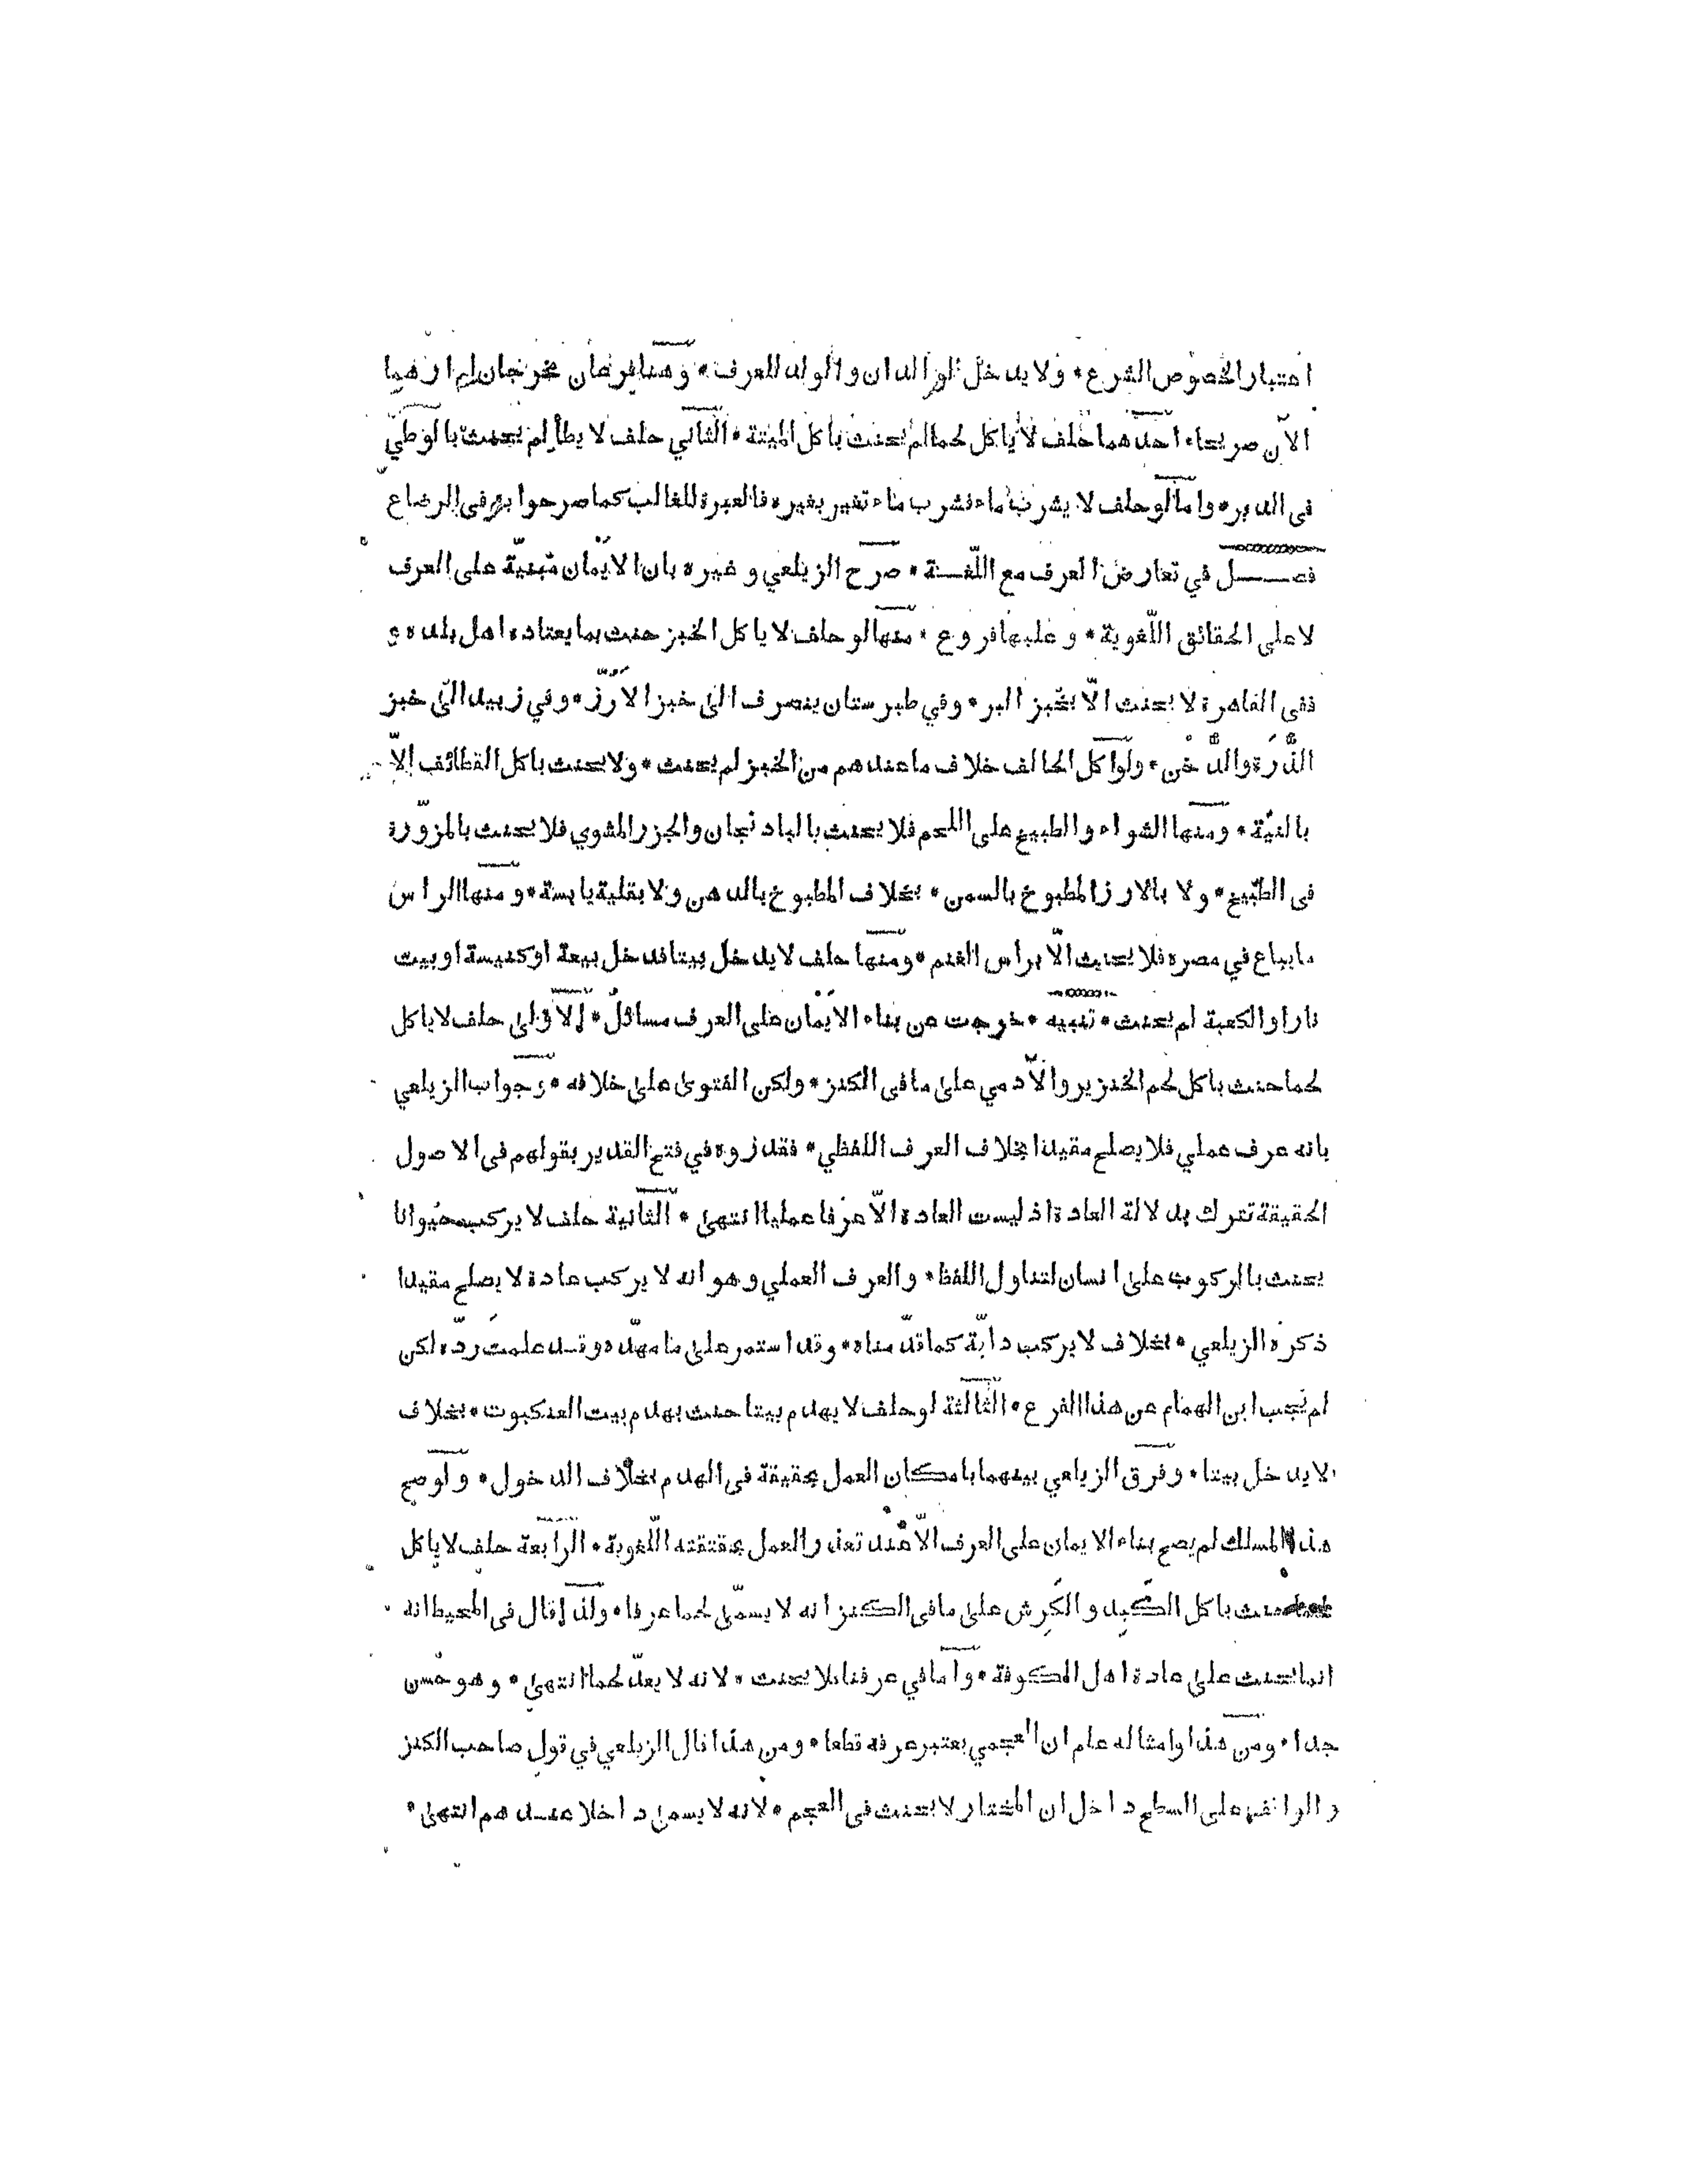 اعتبار الخصوص الشرع * ولا يدخل الوالدان والولد للعرف * وهنا فرعان مخرجان لم ارهما
الآن صريحا * احدهما حلف لا ياكل لحما لم يحنث باكل الميتة * الثاني حلف لا يطأ لم يحنث بالوطي
فى الدبر * واما لو حلف لا يشرب ماء فشرب ماء تغير بغيره فالعبرة للغالب كما صرحوا به فى الرضاع
فصـــل في تعارض العرف مع اللّغـة * صرح الزيلعي وغيره بان الايْمان مبنيّة على العرف
لا على الحقائق اللّغوية * وعليها فروع * منها لو حلف لا ياكل الخبز حنث بما يعتاده اهل بلده و
ففى القاهرة لا يحنث الّا بخبز البر * وفي طبرستان ينصرف الى خبز الاَرُزّ * وفي زبيد الى خبز
الذُّرَة والدُّخْن * ولو اكل الحالف خلاف ما عندهم من الخبز لم يحنث * ولا يحنث باكل القطائف الّا
بالنيّة * ومنها الشواء والطبيخ على اللحم فلا يحنث بالباذنجان والجزر المشوي فلا يحنث بالمزوّرة
فى الطّبيخ * ولا بالارز المطبوخ بالسمن * بخلاف المطبوخ بالدهن ولا بقلية يابسة * ومنها الراس
ما يباع في مصره فلا يحنث الّا براس الغنم * ومنها حلف لا يدخل بيتا فدخل بيعة او كنيسة او بيت
نار او الكعبة لم يحنث * تنبيه * خرجت عن بناء الايْمان على العرف مسائل * الاولى حلف لا ياكل
لحما حنث باكل لحم الخنزير والآدمي على ما فى الكنز * ولكن الفتوى على خلافه * وجواب الزيلعي
بانه عرف عملي فلا يصلح مقيدا بخلاف العرف اللفظي * فقد زوه في فتح القدير بقولهم فى الاصول
الحقيقة تترك بدلالة العادة اذ ليست العادة الّا عرفا عمليا انتهى * الثانية حلف لا يركب حيوانا
يحنث بالركوب على انسان لتناول اللفظ * والعرف العملي وهو انه لا يركب عادة لا يصلح مقيدا
ذكره الزيلعي * بخلاف لا يركب دابّة كما قدّمناه * وقد استمر على ما مهّده وقـد علمتَ ردّه لكن
لم يُجب ابن الهمام عن هذا الفرع * الثالثة لو حلف لا يهدم بيتا حنث بهدم بيت العنكبوت * بخلاف
لا يدخل بيتا * وفرق الزيلعي بينهما بامكان العمل بحقيقة فى الهدم بخلاف الدخول * ولو صح
هذا المسلك لم يصح بناء الايمان على العرف الّا عند تعذر العمل بحقيقته اللّغوية * الرابعة حلف لا ياكل
لحما حنث باكل الكَبِد والكَرِش على ما فى الكنز انه لا يسمّى لحما عرفا * ولذا قال فى المحيط انه
انما يحنث على عادة اهل الكوفة * واما في عرفنا فلا يحنث * لانه لا يعدّ لحما انتهى * وهو حُسن
جدا * ومن هذا وامثاله علم ان العجمي يعتبر عرفه قطعا * ومن هذا قال الزيلعي في قول صاحب الكنز
والواقف على السطح داخل ان المختار لا يحنث فى العجم * لانه لا يسمى داخلا عنـدهم انتهى *